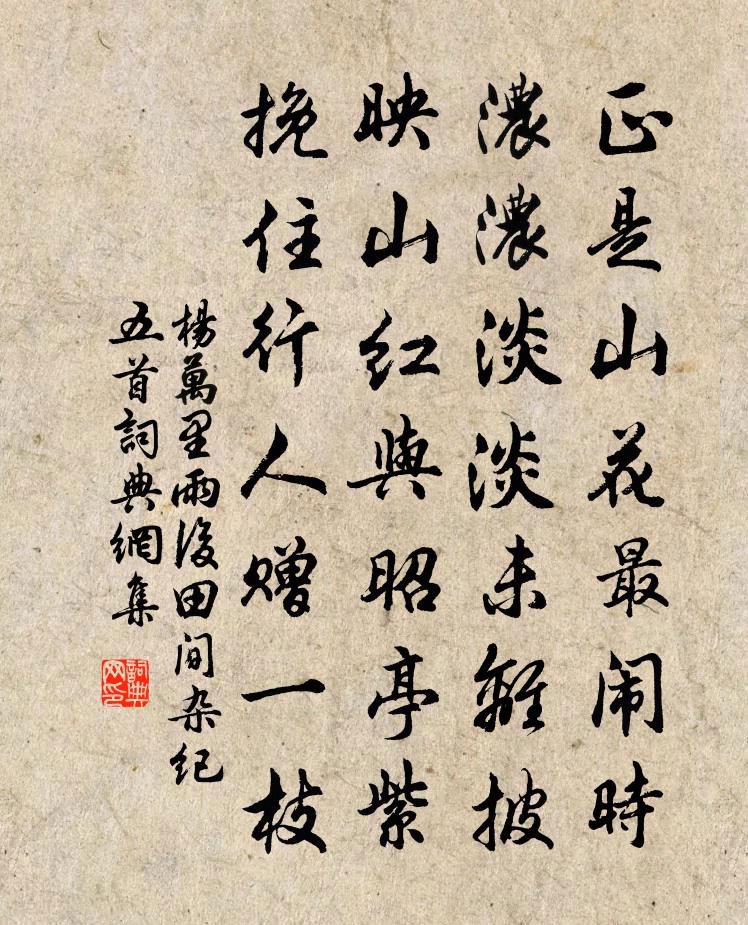 正是山花最闹時
濃濃淡淡未離披
映山红與昭亭紫
挽住行人赠一枝
楊萬里雨後田间杂纪
五首詞典網集
詞典
网印